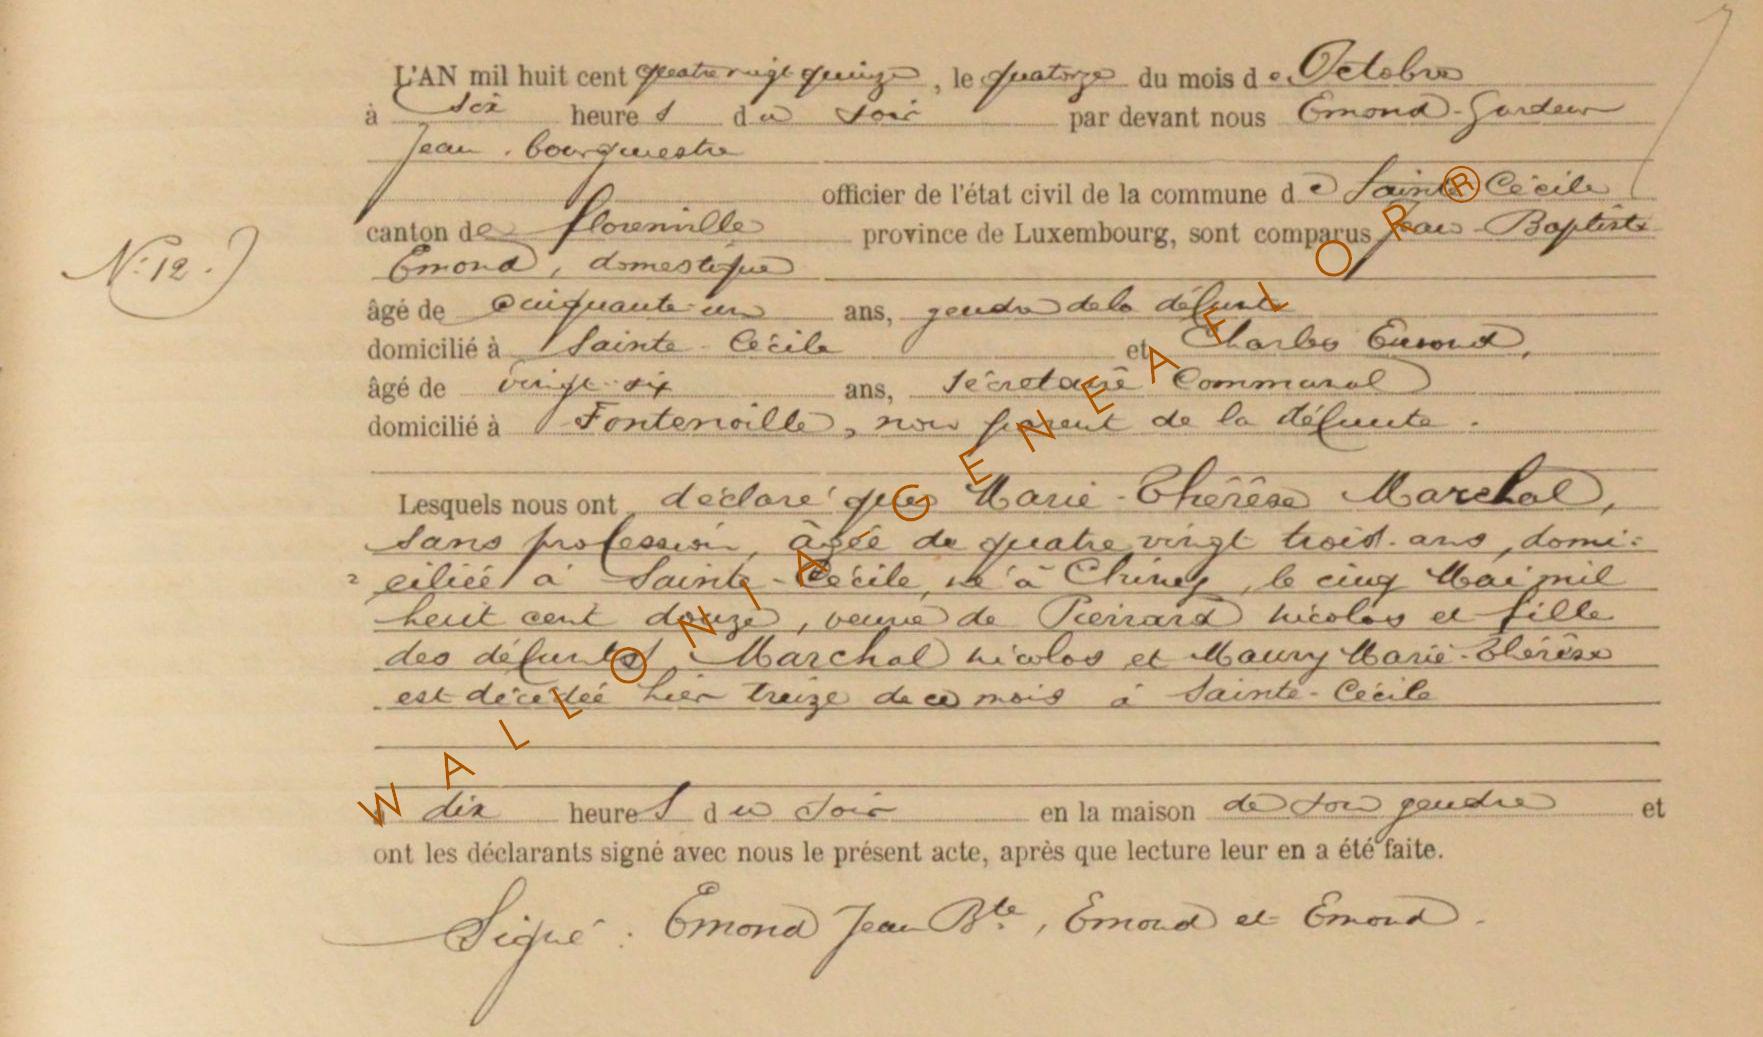 L'AN mil huit cent quatre vingt quinze, le quatorze du mois de Octobre
à six heures du soir par devant nous Emond-Gardeur
Jean, bourgmestre
officier de l'état civil de la commune de Sainte Cécile
canton de Florenville province de Luxembourg, sont comparus Jean-Baptiste
N° 12.
Emond, domestique
âgé de cinquante-un ans, gendre de la défunte
domicilié à Sainte-Cécile et Charles Emond,
âgé de vingt-six ans, secrétaire Communal
domicilié à Fontenoille, non parent de la défunte.
Lesquels nous ont déclaré que Marie-Thérèse Marchal,
sans profession, âgée de quatre vingt trois ans, domi-
ciliée à Sainte-Cécile, né à Chiny, le cinq Mai mil
huit cent douze, veuve de Pierrard nicolas et fille
des défunts Marchal nicolas et Maury Marie-Thérèse
est décédée hier treize de ce mois à Sainte-Cécile
dix heures du soir en la maison de son gendre et
ont les déclarants signé avec nous le présent acte, après que lecture leur en a été faite.
Signé: Emond Jean Bte, Emond et Emond.
WALLONIA GENEAFLOR ®